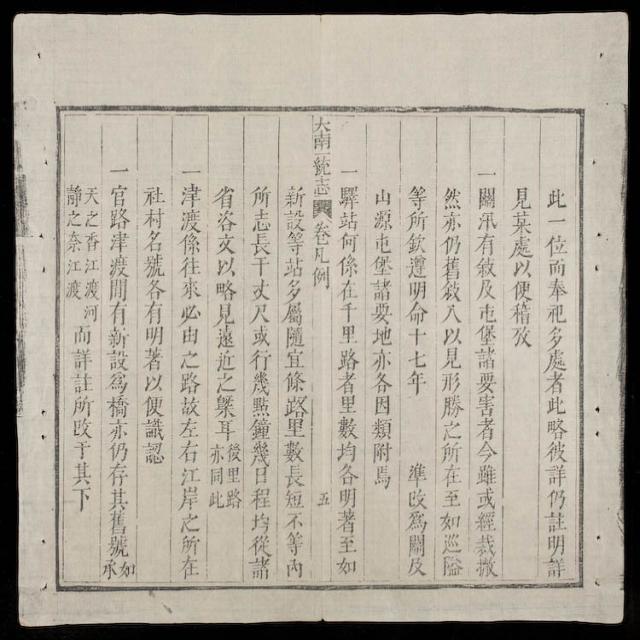 此一位而奉祀多處者此略彼詳仍註明詳
見某處以便稽攷
一關汛有敘及屯堡諸要害者今雖或經裁撤
然亦仍舊敘入以見形勝之所在至如巡隘
等所欽遵明命十七年　準改爲關及
山源屯堡諸要地亦各因類附焉
一驛站何係在千里路者里數均各明著至如
大南一統志　卷凡例　五
新設等站多屬隨宜條路里數長短不等內
所志長干丈尺或行幾點鐘幾日程均從諸
省咨文以略見遠近之槩耳後里路亦同此
一津渡係往來必由之路故左右江岸之所在
社村名號各有明著以便識認
一官路津渡間有新設爲橋亦仍存其舊號如承
天之香江渡河靜之奈江渡而詳註所改于其下